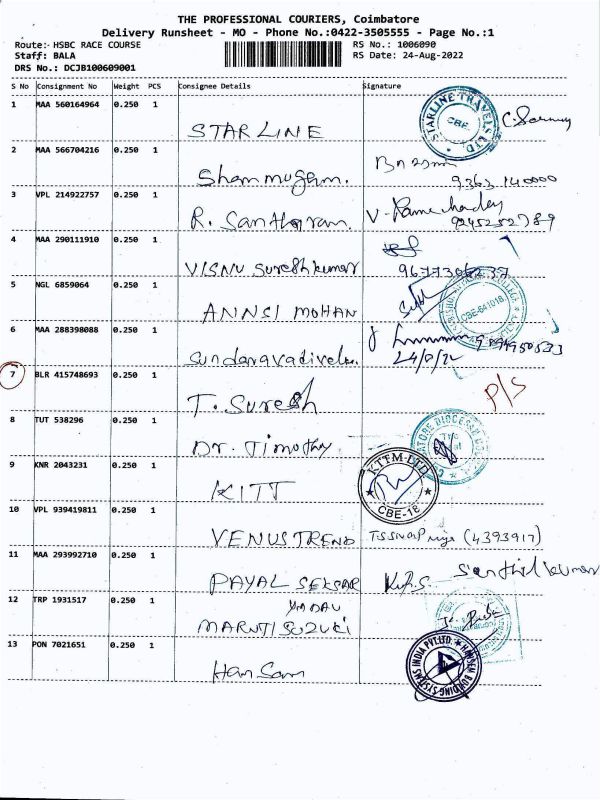 THE PROFESSIONAL COURIERS, Coimbatore
Delivery Runsheet - MO - Phone No.:0422-3505555 - Page No.:1
Route:- HSBC RACE COURSE
RS No.: 1006090
Staff: BALA
RS Date: 24-Aug-2022
DRS No.: DCJB100609001
S No Consignment No Weight PCS Consignee Details Signature
1 MAA 560164964 0.250 1
STARLINE
STARLINE TRAVELS LTD CBE
2 MAA 566704216 0.250 1
Shanmugam.
9363140000
3 VPL 214922757 0.250 1
R. Santhanam.
V.
9245252789
4 MAA 290111910 0.250 1
VISNU Sureshkumar
5 NGL 6859064 0.250 1
ANNSI MOHAN
CBE-641018
6 MAA 288398088 0.250 1
Sundaravadivelu
24/8/22
7 BLR 415748693 0.250 1
T. Suresh
P/S
8 TUT 538296 0.250 1
Dr. Timothy
9 KNR 2043231 0.250 1
KITT
KTTM-LTD
CBE-18
10 VPL 939419811 0.250 1
VENUS TREND
(4393917)
11 MAA 293992710 0.250 1
PAYAL SEKSAR
Senthil kumar
YADAV
12 TRP 1931517 0.250 1
MARUTI SUZUKI
13 PON 7021651 0.250 1
Hansam
HANSEM BUILDING SYSTEMS INDIA PVT.LTD.